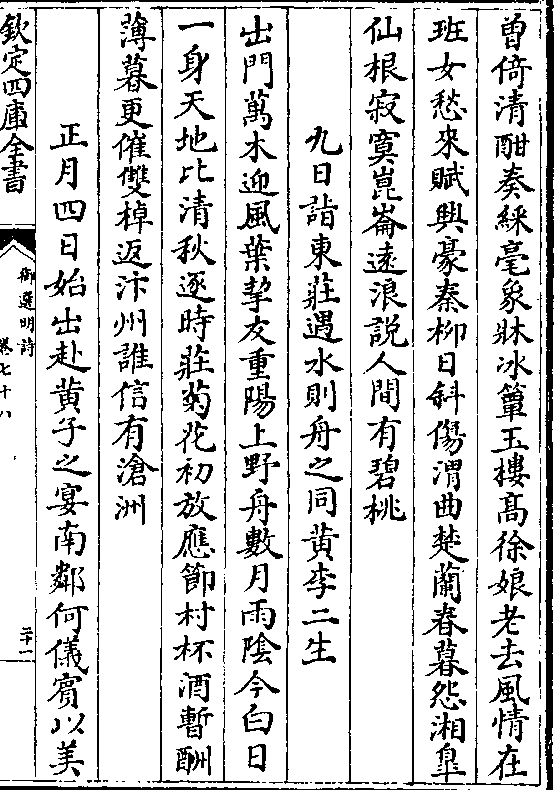 曾倚清酣奏綵毫象牀冰簟玉樓髙徐娘老去風情在
班女愁來賦興豪秦柳日斜傷渭曲楚蘭春暮怨湘臯
仙根寂寞崑崙遠浪說人間有碧桃
九日詣東莊遇水則舟之同黄李二生
出門萬木迎風葉挈友重陽上野舟數月雨陰今白日
一身天地比清秋逐時莊菊花初放應節村杯酒暫酬
薄暮更催雙棹返汴州誰信有滄洲
正月四日始出赴黄子之宴南鄰何儀賓以美
欽定四庫全書
御選明詩
卷七十八
二十一